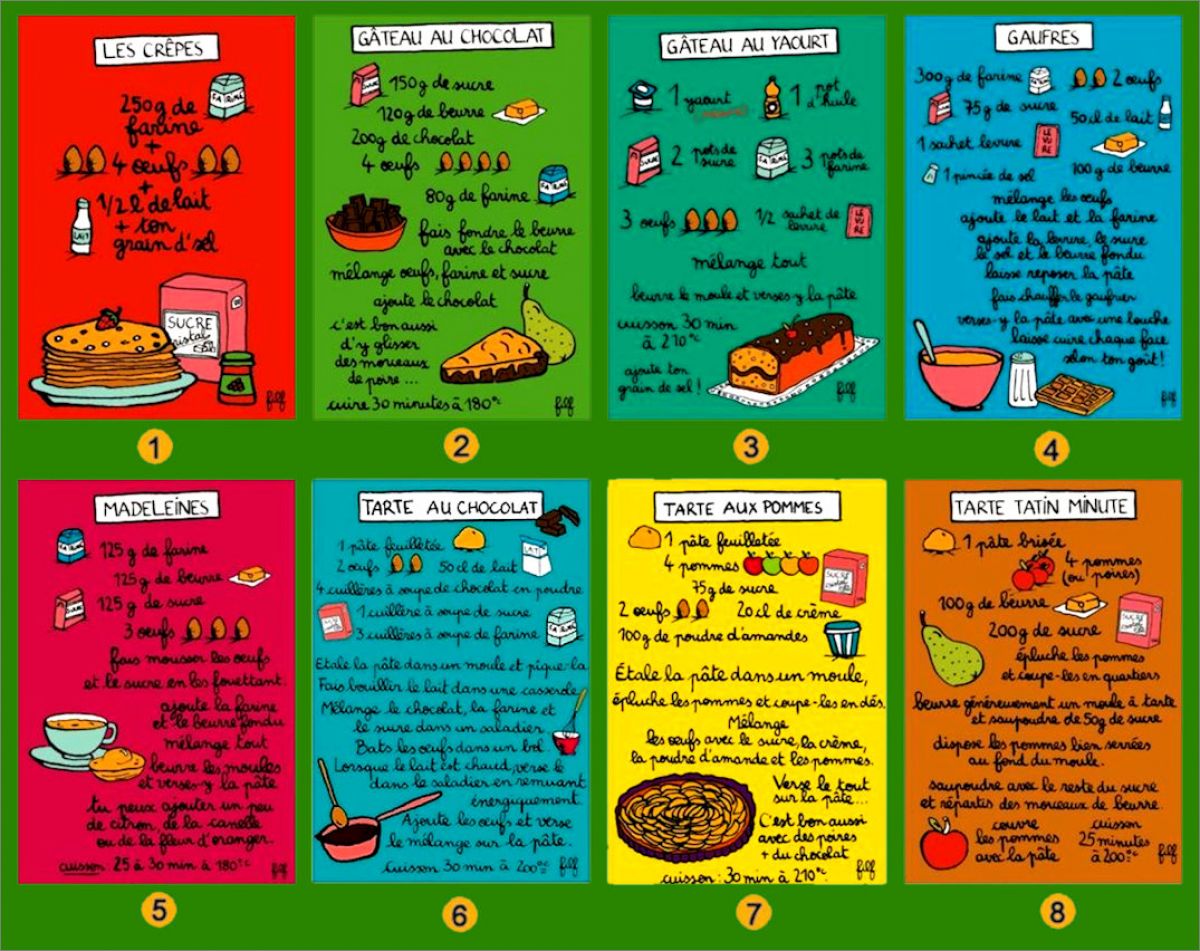 LES CRÊPES
250g de
farine
+
4 oeufs
+
1/2 l de lait
+ ton
grain d'sel
FARINE
LAIT
SUCRE
cristal
filf
1
GÂTEAU AU CHOCOLAT
SUCRE
150g de sucre
120g de beurre
200g de chocolat
4 oeufs
80g de farine
FARINE
fais fondre le beurre
avec le chocolat
mélange oeufs, farine et sucre
ajoute le chocolat
c'est bon aussi
d'y glisser
des morceaux
de poire ...
cuire 30 minutes à 180°C
filf
2
GÂTEAU AU YAOURT
1 yaourt
1 pot
d'huile
SUCRE
2 pots de
sucre
FARINE
3 pots de
farine
3 oeufs
1/2 sachet de
levure
LE
VU
RE
mélange tout
beurre le moule et verses-y la pâte
cuisson 30 min
à 210°C
ajoute ton
grain de sel !
filf
3
GAUFRES
300g de farine
FARINE
2 oeufs
SUCRE
75g de sucre
50cl de lait
1 sachet levure
LE
VU
RE
1 pincée de sel
100g de beurre
mélange les oeufs
ajoute le lait et la farine
ajoute la levure, le sucre
le sel et le beurre fondu
laisse reposer la pâte
fais chauffer le gaufrier
verses-y la pâte avec une louche
laisse cuire chaque face
selon ton goût !
filf
4
MADELEINES
FARINE
125 g de farine
125g de beurre
SUCRE
125 g de sucre
3 oeufs
fais mousser les oeufs
et le sucre en les fouettant.
ajoute la farine
et le beurre fondu
mélange tout
beurre les moules
et verses-y la pâte
tu peux ajouter un peu
de citron, de la canelle
ou de la fleur d'oranger.
cuisson 25 à 30 min à 180°C
filf
5
TARTE AU CHOCOLAT
1 pâte feuilletée
2 oeufs
50 cl de lait
LAIT
4 cuillères à soupe de chocolat en poudre
1 cuillère à soupe de sucre
3 cuillères à soupe de farine
FARINE
Etale la pâte dans un moule et pique-la
Fais bouillir le lait dans une casserole
Mélange le chocolat, la farine et
le sucre dans un saladier
Bats les oeufs dans un bol.
Lorsque le lait est chaud, verse le
dans le saladier en remuant
énergiquement.
Ajoute les oeufs et verse
le mélange sur la pâte.
Cuisson 30 min à 200°C
filf
6
TARTE AUX POMMES
1 pâte feuilletée
4 pommes
75g de sucre
SUCRE
2 oeufs
20cl de crème
100g de poudre d'amandes
Étale la pâte dans un moule,
épluche les pommes et coupe-les en dés.
Mélange
les oeufs avec le sucre, la crème,
la poudre d'amande et les pommes.
Verse le tout
sur la pâte...
C'est bon aussi
avec des poires
+ du chocolat
cuisson : 30 min à 210°C
filf
7
TARTE TATIN MINUTE
1 pâte brisée
4 pommes
(ou poires)
100g de beurre
SUCRE
200g de sucre
épluche les pommes
et coupe-les en quartiers
beurre généreusement un moule à tarte
et saupoudre de 50g de sucre
dispose les pommes bien serrées
au fond du moule.
saupoudre avec le reste du sucre
et répartis des morceaux de beurre.
couvre
les pommes
avec la pâte
cuisson
25 minutes
à 200°C
filf
8